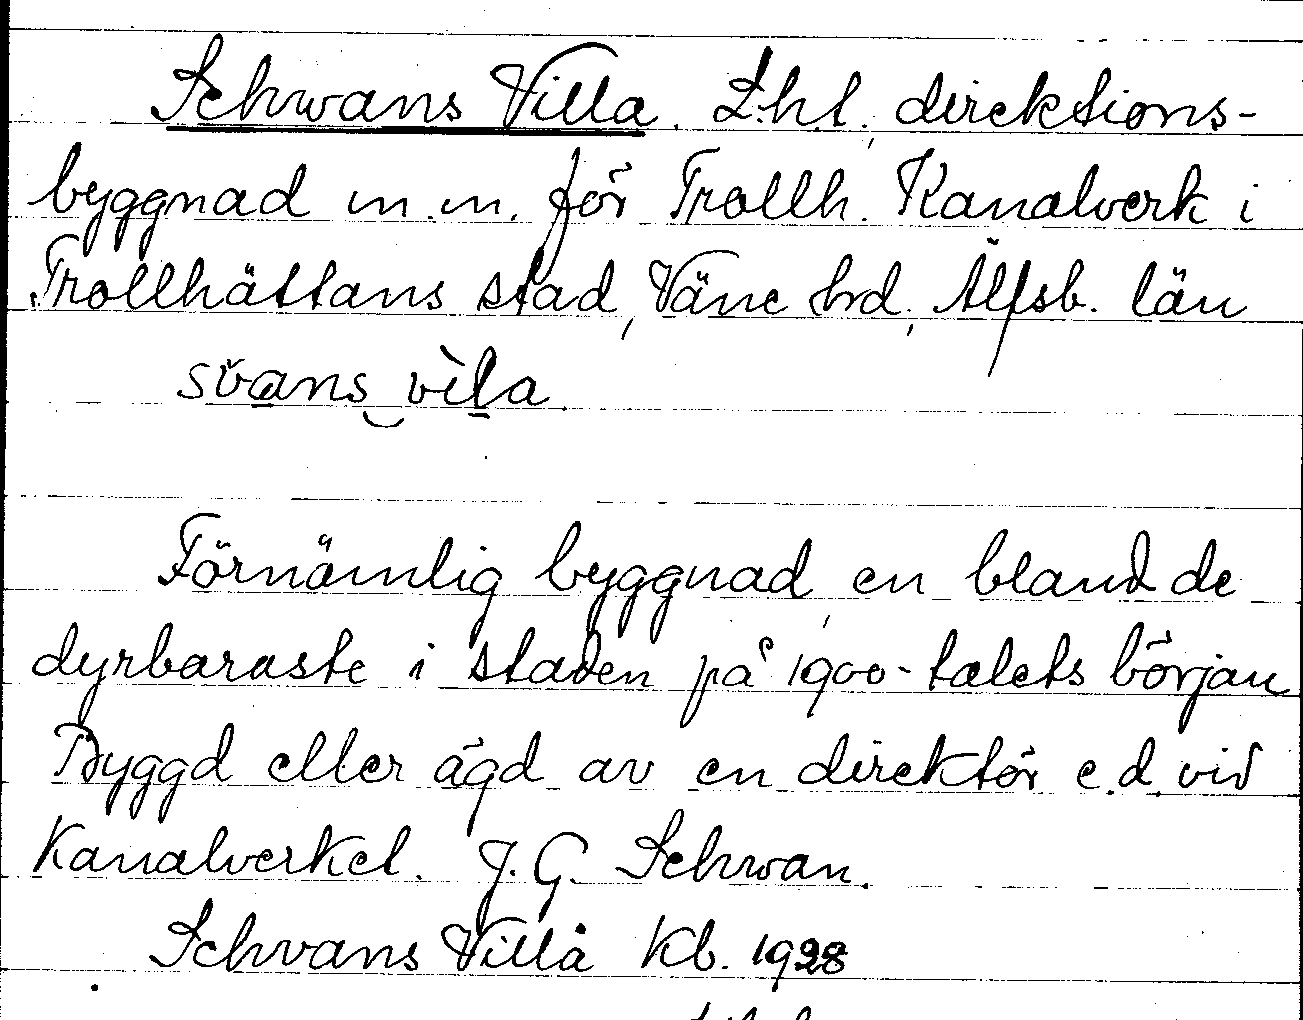 Schwans Villa. L.h.t., direktions-
byggnad m.m. för Trollh. Kanalverk i
Trollhättans stad, Väne hd, Älfsb. län
svans vìla.
Förnämlig byggnad, en bland de
dyrbaraste i staden på 1900-talets början
Byggd eller ägd av en direktör e.d. vid
Kanalverket. J.G. Schwan.
Schvans Villa Kb. 1928